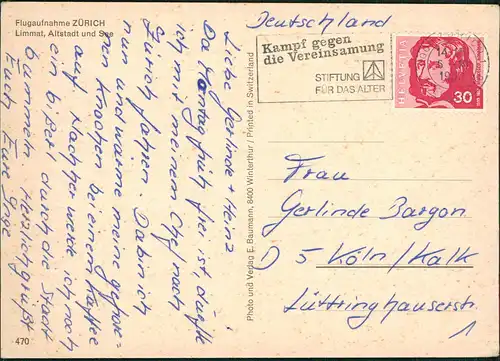 Flugaufnahme ZÜRICH
Limmat, Altstadt und See
Liebe Gerlinde + Heinz
Da Montag früh frei ist, durfte
ich mit meinem Chef nach
Zürich fahren. Da bin ich
nun und wärme meine
nen Knochen bei einem Kaffee
auf. Nachher werde ich noch
ein bißerl durch die Stadt
bummeln. Herzlich grüßt
Euch Eure Inge
470
Photo und Verlag E. Baumann, 8400 Winterthur / Printed in Switzerland
Deutschland
Kampf gegen
die Vereinsamung
STIFTUNG
FÜR DAS ALTER
HELVETIA
30
Frau
Gerlinde Bargon
D 5 Köln/Kalk
Lüttringhauserstr.
1